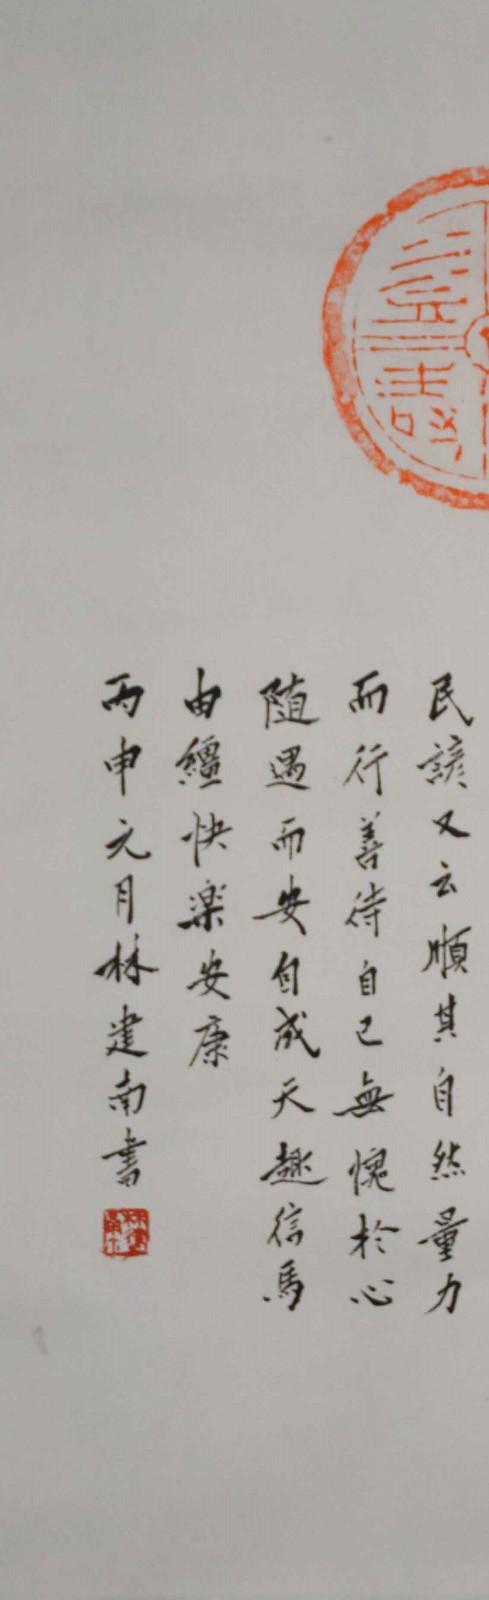 民諺又云順其自然量力
而行善待自己無愧於心
随遇而安自成天趣信馬
由繮快楽安康
丙申元月林建南書